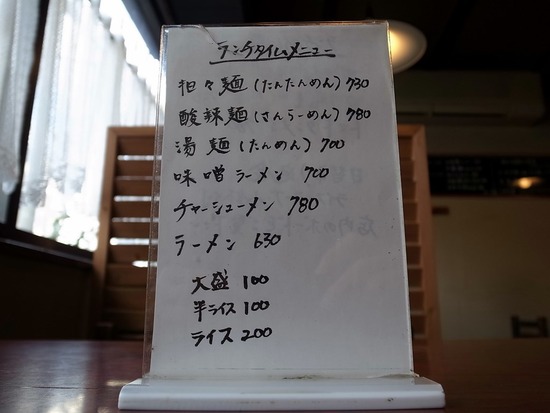 ランチタイムメニュー
担々麺(たんたんめん)730
酸辣麺(さんらーめん)780
湯麺(たんめん)700
味噌ラーメン 700
チャーシューメン 780
ラーメン 630
大盛 100
半ライス 100
ライス 200